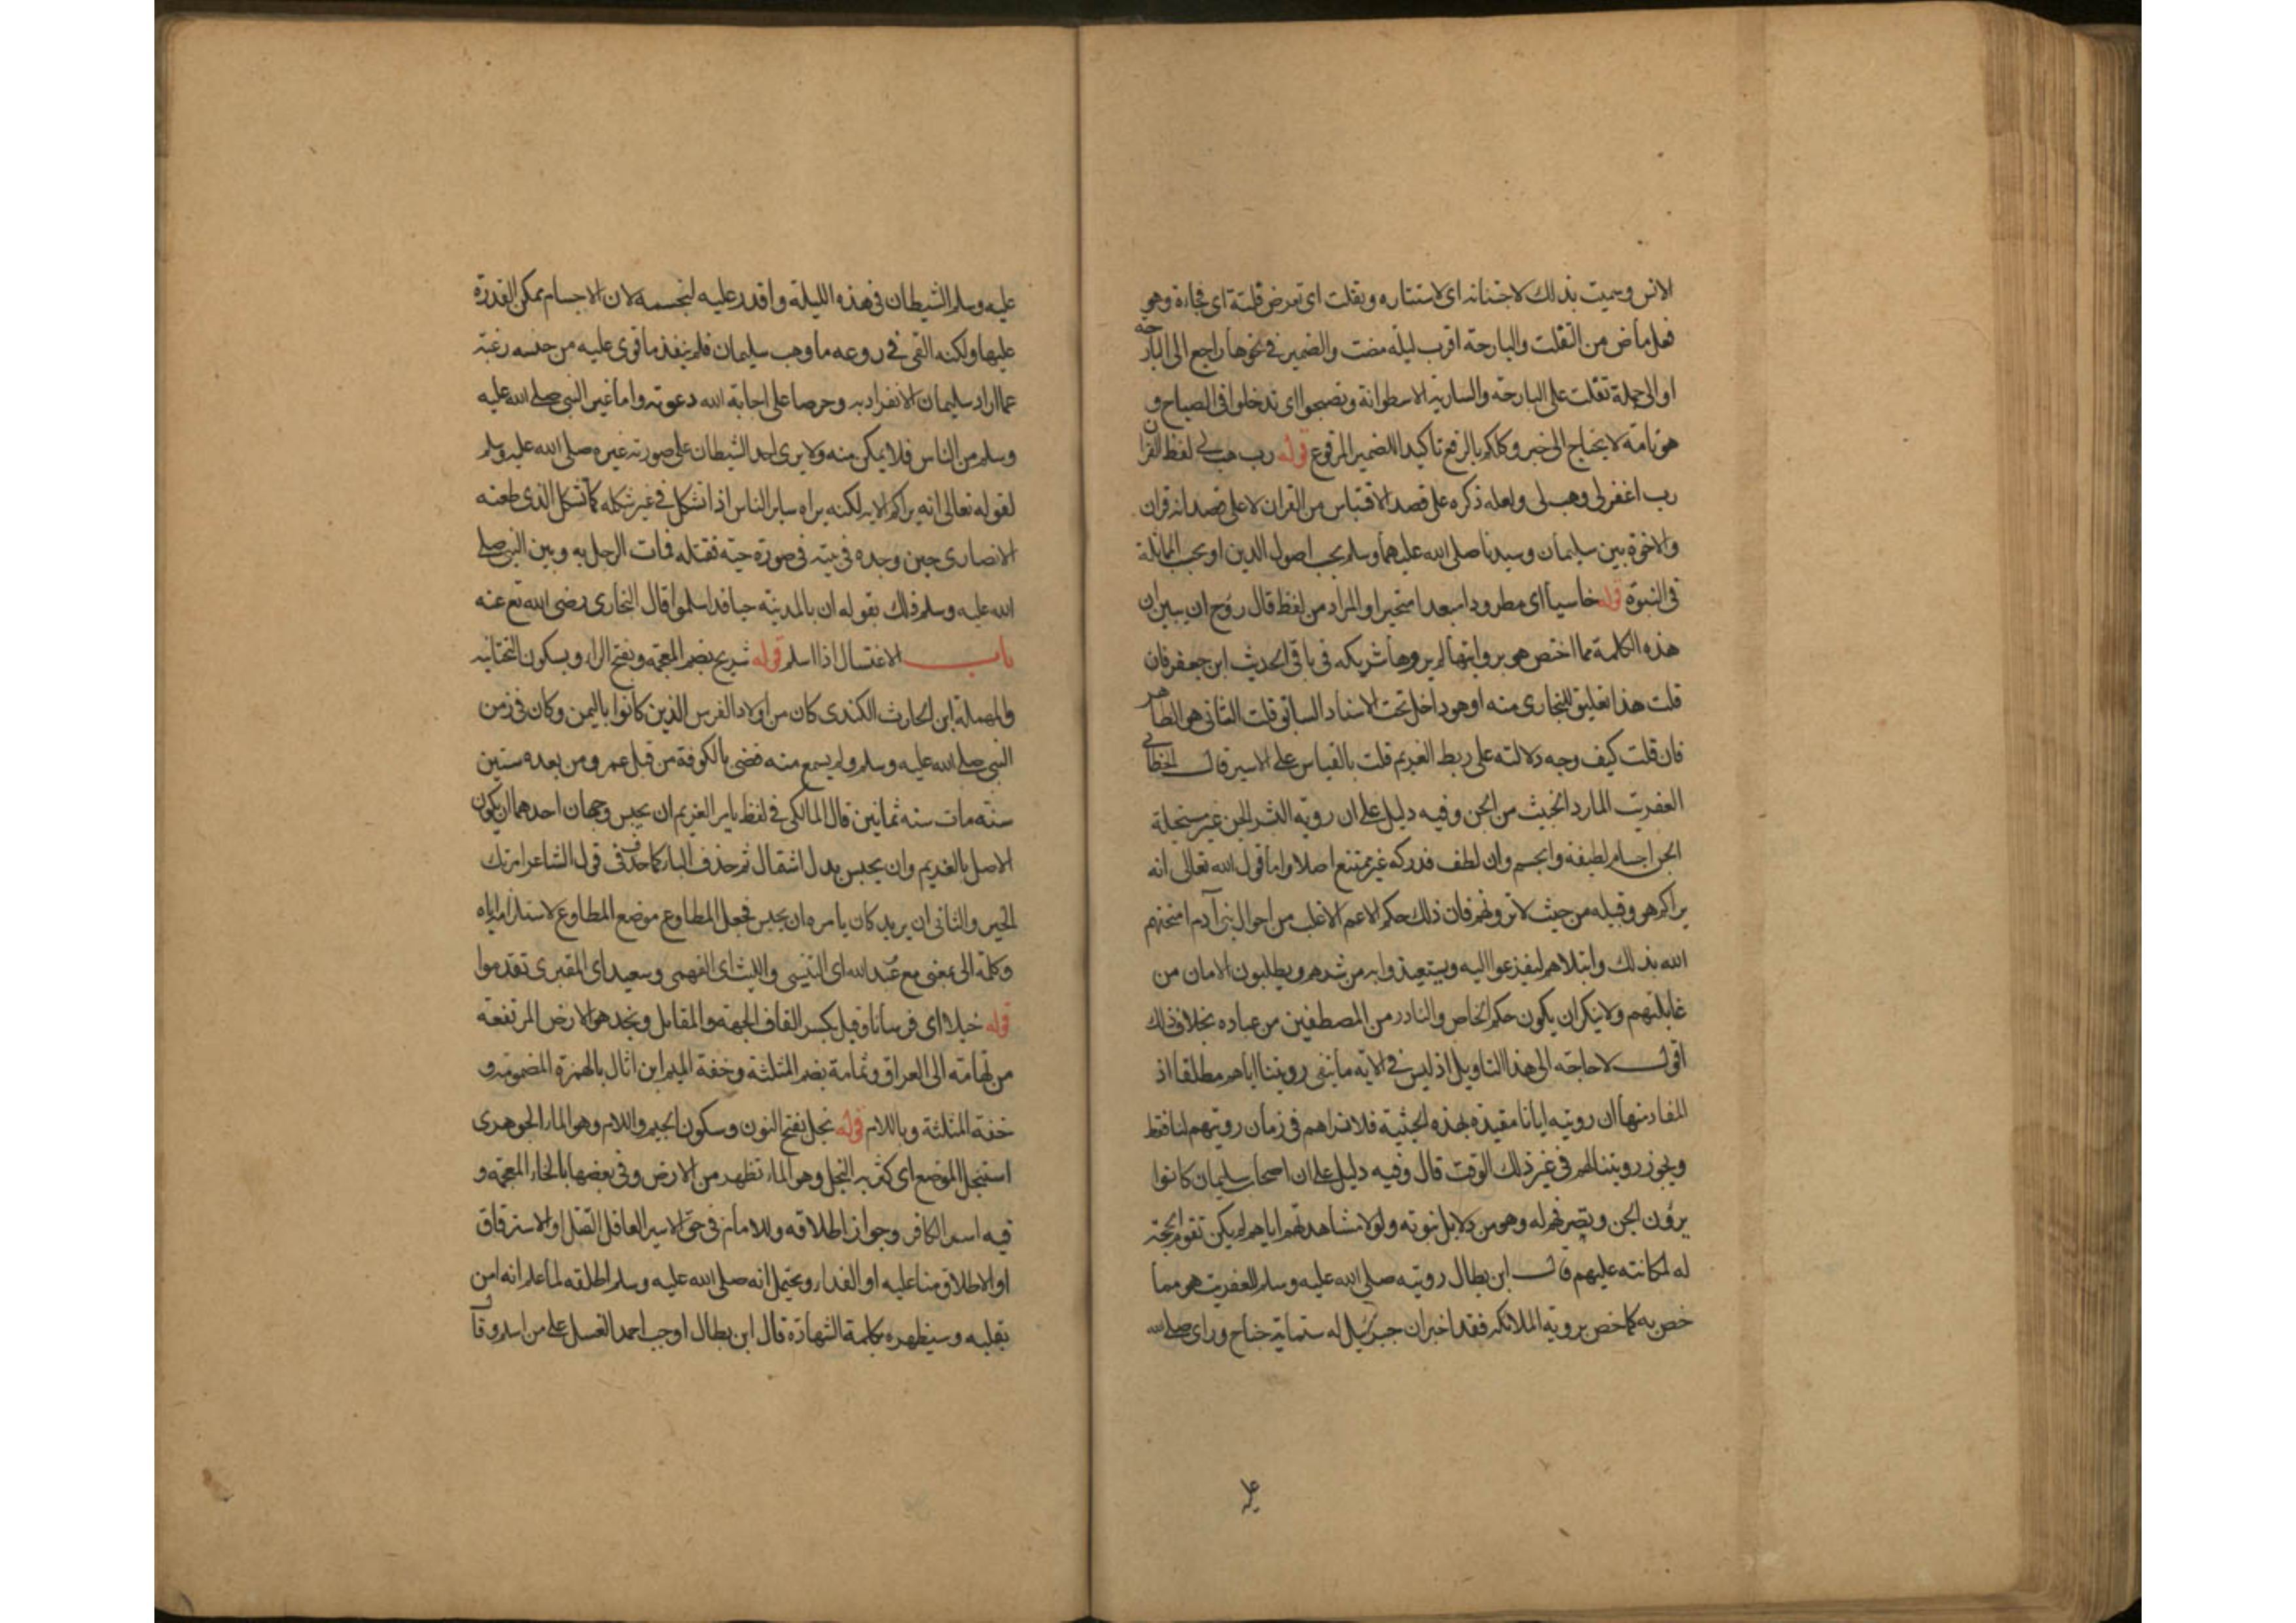 الانس وسميت بذلك لاجتنانه اى لاستتاره وتفلت اى تعرض فلتة اى فجاءة وهو
فعل ماض من التفلت والبارحة اقرب ليلة مضت والضمير فى نحوها راجع الى البارحة
او الى جملة تفلت على البارحة والسارية الاسطوانة وتصبحوا اى تدخلوا فى الصباح و
هو تامة لا يحتاج الى خبر وكلكم بالرفع تاكيدا للضمير المرفوع قوله رب هب لى لفظ القران
رب اغفر لى وهب لى ولعله ذكره على قصد الاقتباس من القران لا على قصد انه قران
والاخوة بين سليمان وسيدنا صلى الله عليهما وسلم بحسب اصول الدين او بحسب المماثلة
فى النبوة قوله خاسيا اى مطرودا مبعدا متحيرا والمراد من لفظ قال روح ان يبين ان
هذه الكلمة مما اختص هو بروايتها لم يروها شريكه فى باقى الحديث ابن جعفر فان
قلت هذا تعليق للبخارى منه او هو داخل تحت الاسناد السابق قلت الثانى هو الظاهر
فان قلت كيف وجه دلالته على ربط الغريم قلت بالقياس على الاسير قال الخطابى
العفريت المارد الخبيث من الجن وفيه دليل على ان روية البشر الجن غير مستحيلة
الجن اجسام لطيفة والجسم وان لطف فدركه غير ممتنع اصلا واما قول الله تعالى انه
يراكم هو وقبيله من حيث لا ترونهم فان ذلك حكم الاعم الاغلب من احوال بنى آدم امتحنهم
الله بذلك وابتلاهم ليفزعوا اليه ويستعيذوا به من شرهم ويطلبون الامان من
غايلتهم ولا ينكر ان يكون حكم الخاص والنادر من المصطفين من عباده بخلاف ذلك
اقول لا حاجة الى هذا التاويل اذ ليس فى الاية ما ينفى رويتنا اياهم مطلقا اذ
المفاد منها ان رويته ايانا مقيدة بهذه الحيثية فلا نراهم فى زمان رويتهم لنا فقط
ويجوز رويتنا لهم فى غير ذلك الوقت قال وفيه دليل على ان اصحاب سليمان كانوا
يرون الجن وتصرفهم له وهو من دلايل نبوته ولولا مشاهدتهم اياهم لم يكن تقوم الحجة
له لمكانته عليهم قال ابن بطال رويته صلى الله عليه وسلم للعفريت هو مما
خص به كما خص بروية الملائكة فقد اخبر ان جبرئيل له ستماية جناح وراى صلى الله
عليه
عليه وسلم الشيطان فى هذه الليلة واقدر عليه لتجسمه لان الاجسام يمكن القدرة
عليها ولكنه القى فى روعه ما وهب سليمان فلم ينفذ ما قوى عليه من حبسه رغبة
عما اراد سليمان الانفراد به وحرصا على اجابة الله دعوته واما غير النبى صلى الله عليه
وسلم من الناس فلا يمكن منه ولا يرى احد الشيطان على صورته غيره صلى الله عليه وسلم
لقوله تعالى انه يراكم الاية لكنه يراه ساير الناس اذا تشكل فى غير شكله كما تشكل الذى طعنه
الانصارى حين وجده فى بيته فى صورة حية فقتله فمات الرجل به وبين النبى صلى
الله عليه وسلم ذلك بقوله ان بالمدينة جنا قد اسلموا قال البخارى رضى الله تع عنه
باب الاغتسال اذا اسلم قوله شريح بضم المعجمة وبفتح الراء وبسكون التحتانية
والمهملة ابن الحارث الكندى كان من اولاد الفرس الذين كانوا باليمن وكان فى زمن
النبى صلى الله عليه وسلم ولم يسمع منه قضى بالكوفة من قبل عمر ومن بعده ستين
سنة مات سنة ثمانين قال المالكى فى لفظ يامر الغريم ان يحبس وجهان احدهما ان يكون
الاصل بالغريم وان يحبس بدل اشتمال ثم حذف الباء كما حذف فى قول الشاعر امرتك
الخير والثانى ان يريد كان يامره ان يحبس فجعل المطاوع موضع المطاوع لاستلزامه اياه
وكلمة الى بمعنى مع عبد الله اى التنيسى والليث اى الفهمى وسعيد اى المقبرى تقدموا
قوله خيلا اى فرسانا وقبل بكسر القاف الجهة والمقابل ونجد هو الارض المرتفعة
من تهامة الى العراق وثمامة بضم المثلثة وخفة الميم ابن اثال بالهمزة المضمومة و
خفة المثلثة وباللام قوله نجل بفتح النون وسكون الجيم واللام وهو الماء الجوهرى
استنجل الموضع اى كثر به النجل وهو الماء تظهر من الارض وفى بعضها بالخاء المعجمة و
فيه اسر الكافر وجواز اطلاقه وللامام فى حق الاسير العاقل القتل او الاسترقاق
او الاطلاق منا عليه او الفداء ويحتمل انه صلى الله عليه وسلم اطلقه لما علم انه امن
بقلبه وسيظهره بكلمة الشهادة قال ابن بطال اوجب احمد الغسل على من اسلم وقال